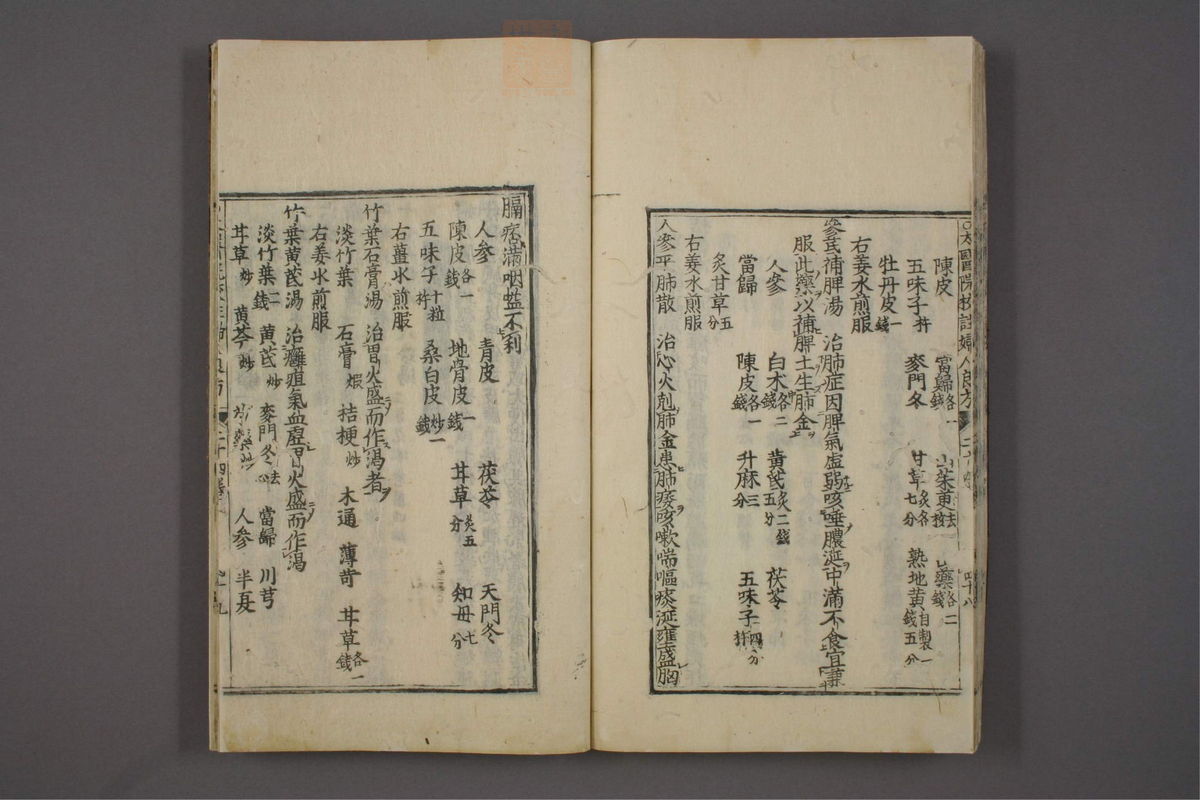 太醫院校註婦人良方 四十八
陳皮 當歸各一錢 山茱萸去核 山藥各二錢
五味子杵 麥門冬 甘草炙各七分 熟地黃自製一錢五分
牡丹皮一錢
右姜水煎服
參芪補脾湯 治肺症因脾氣虛弱咳唾膿涎中滿不食宜兼
服此藥以補脾土生肺金
人參 白朮各二錢 黃芪炙二錢五分 茯苓
當歸 陳皮各一錢 升麻三分 五味子四分杵
炙甘草五分
右姜水煎服
人參平肺散 治心火剋肺金患肺痿咳嗽喘嘔痰涎壅盛胸
膈痞滿咽嗌不利
人參 青皮 茯苓 天門冬
陳皮各一錢 地骨皮一錢 甘草炙五分 知母七分
五味子十粒杵 桑白皮炒一錢
右薑水煎服
竹葉石膏湯 治胃火盛而作渴者
淡竹葉 石膏煆 桔梗炒 木通 薄苛 甘草各一錢
右姜水煎服
竹葉黃芪湯 治癰疽氣血虛胃火盛而作渴
淡竹葉二錢 黃芪炒 麥門冬去心 當歸 川芎
甘草炒 黃芩炒 芍藥炒 人參 半夏
二十四卷